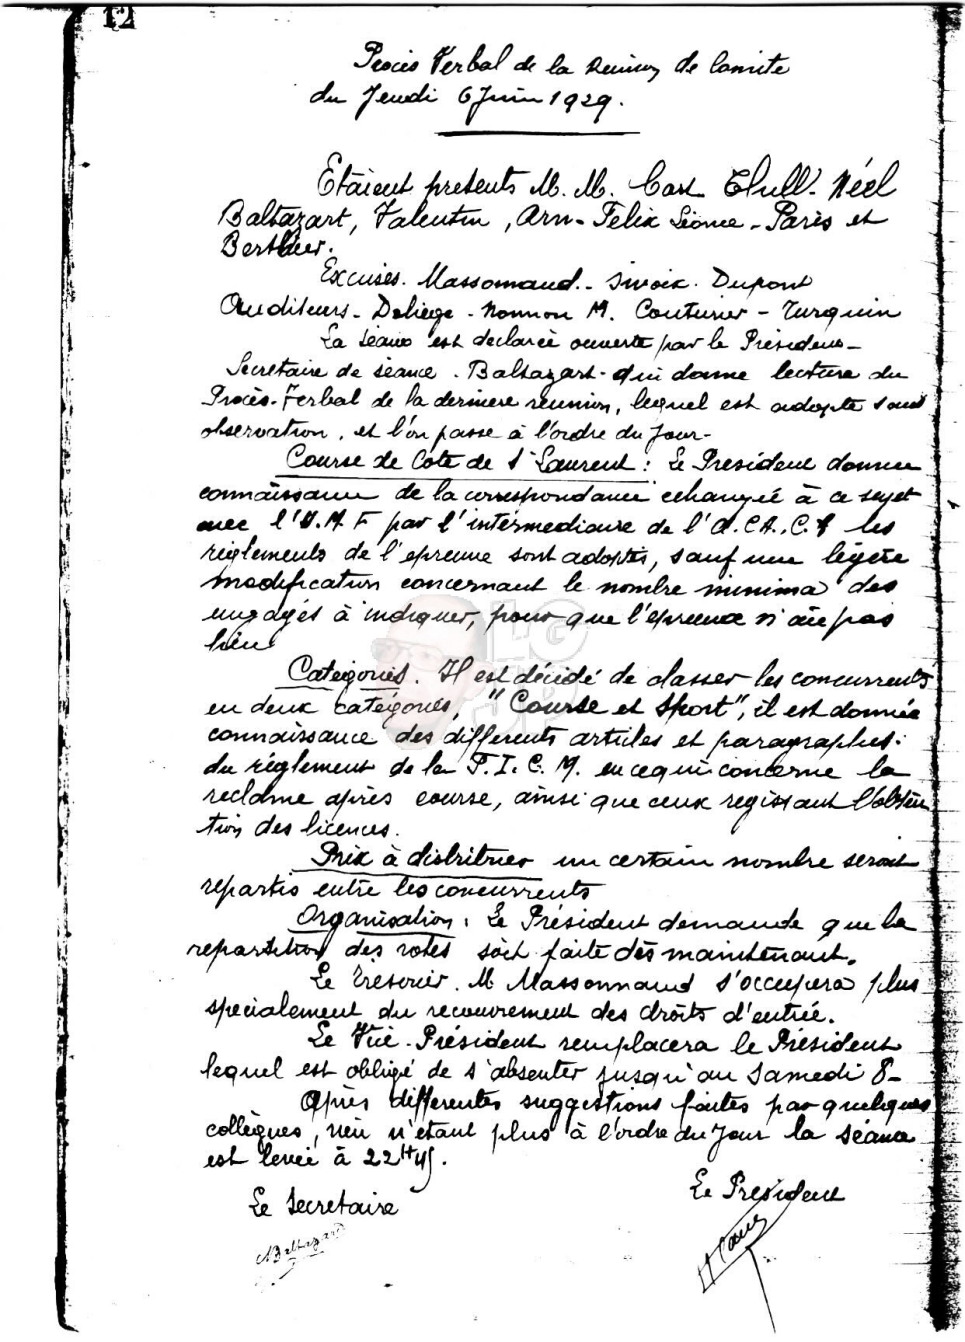 12
Procès Verbal de la Reunion de Comite
du Jeudi 6 Juin 1929.
Etaient presents M. M. Cast Thull. Néel
Baltazart, Valentin, Arn- Felix Léonce - Paris et
Berthier.
Excusés. Massonnaud. - Dupont
Auditeurs - Deliège - Monnon M. Couturier - Turquin
La Séance est declarée ouverte par le Président -
Secretaire de séance. Baltazart - qui donne lecture du
Procès-Verbal de la derniere reunion, lequel est adopte sans
observation, et l'on passe à l'ordre du Jour -
Course de Cote de St Laurent : Le President donne
connaissance de la correspondance echangée à ce sujet
avec l'U.M.F par l'intermediaire de l'A.C.A.C.F les
règlements de l'epreuve sont adoptés, sauf une légère
modification concernant le nombre minima des
engagés à indiquer, pour que l'épreuve n'aie pas
lieu
Categories. Il est décidé de classer les concurrents
en deux catégories, "Course et Sport", il est donnée
connaissance des differents articles et paragraphes
du règlement de la F.I.C.M. en ce qui concerne la
reclame après course, ainsi que ceux regissant l'obten
tion des licences.
Prix à distribuer un certain nombre serait
repartis entre les concurrents
Organisation : Le Président demande que la
repartition des rôles soit faite dès maintenant.
Le Trésorier. M Massonnaud s'occupera plus
specialement du recouvrement des droits d'entrée.
Le Vice-Président remplacera le Président
lequel est obligé de s'absenter jusqu'au Samedi 8 -
Après differentes suggestions faites par quelques
collègues, rien n'etant plus à l'ordre du Jour la séance
est levée à 22H45.
Le Secretaire
Le President
Baltazart
LG